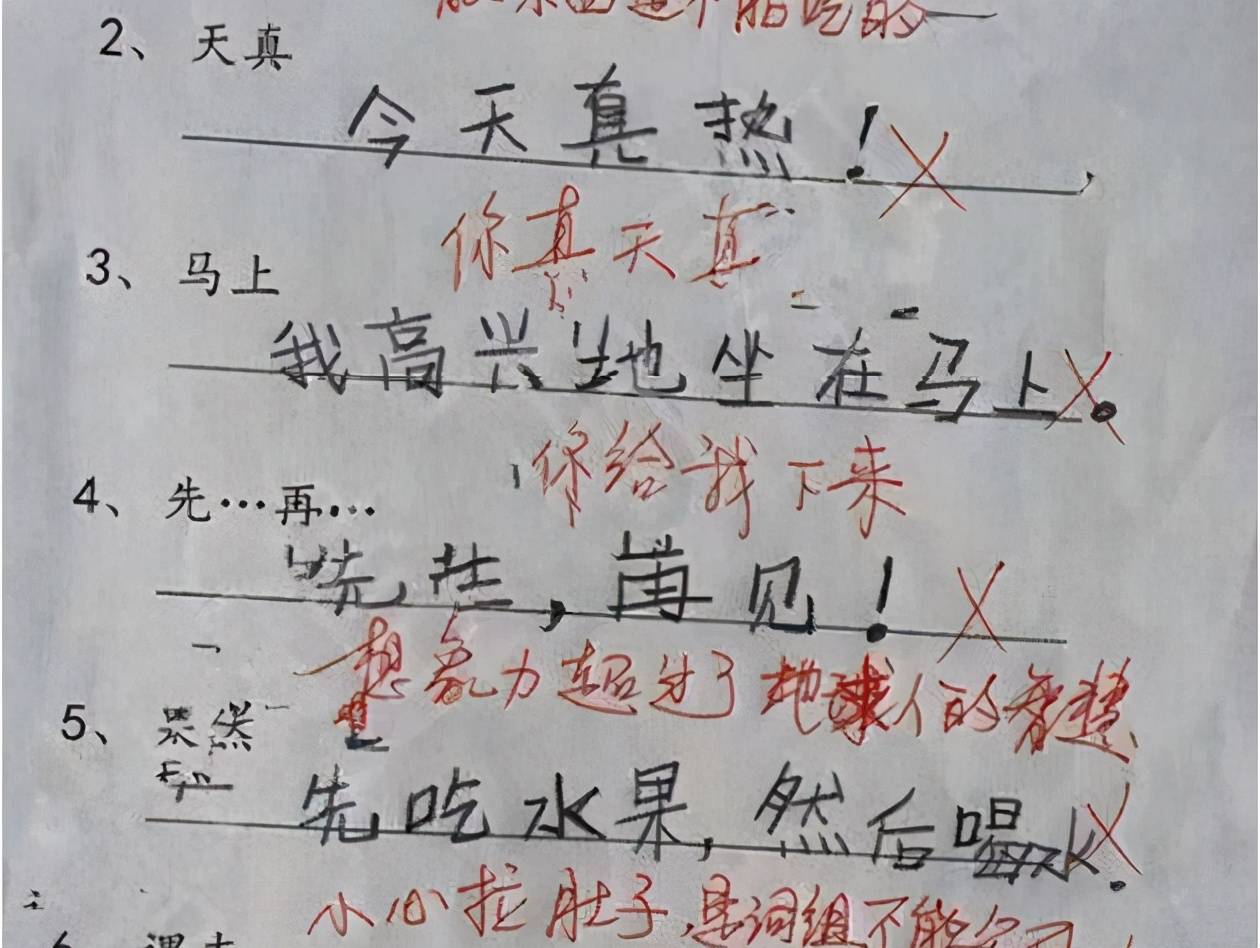 能吃的
2、天真
今天真热！
你真天真
3、马上
我高兴地坐在马上。
你给我下来
4、先…再…
先生，再见！
想象力超过了地球人的智慧
5、果然
先吃水果，然后喝水。
小心拉肚子，是词组不能分
6、课